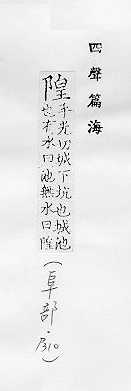 四聲篇海
隍
乎光切城下坑也城池
也有水曰池無水曰隍
(阜部·P310)